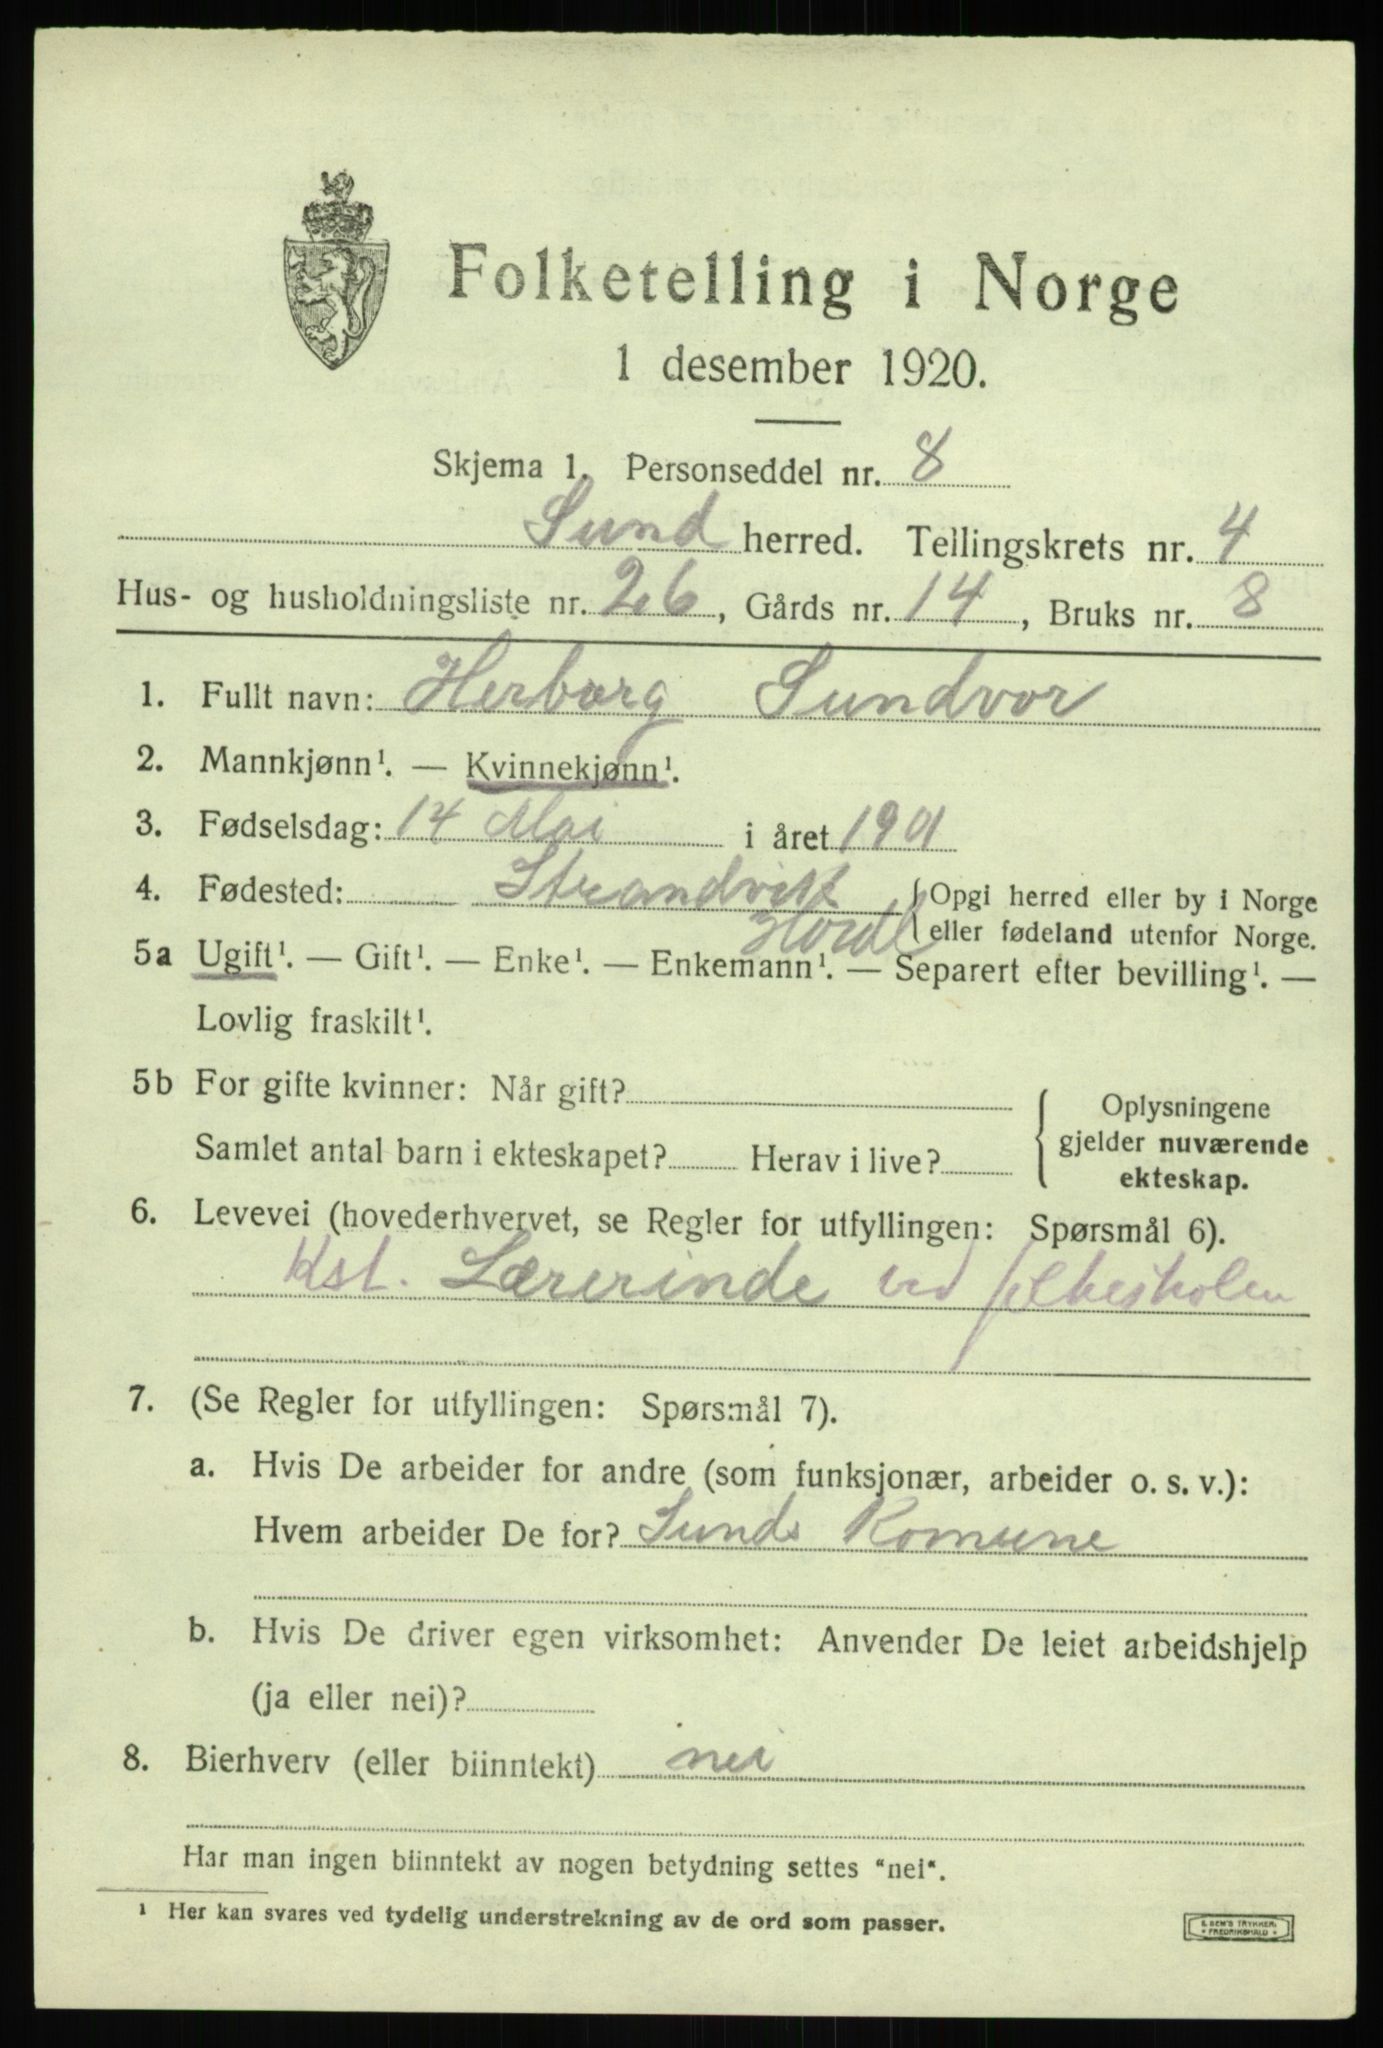 Folketelling i Norge
1 desember 1920.
Skjema 1. Personseddel nr. 8
Sund herred. Tellingskrets nr. 4
Hus- og husholdningsliste nr. 26, Gårds nr. 14, Bruks nr. 8
1. Fullt navn: Herborg Sundvor
2. Mannkjønn¹. — Kvinnekjønn¹.
3. Fødselsdag: 14 Mai i året 1901
4. Fødested: Strandvik { Opgi herred eller by i Norge
Hordl { eller fødeland utenfor Norge.
5a Ugift¹. — Gift¹. — Enke¹. — Enkemann¹. — Separert efter bevilling¹. —
Lovlig fraskilt¹.
5b For gifte kvinner: Når gift? { Oplysningene
Samlet antal barn i ekteskapet? Herav i live? gjelder nuværende
ekteskap.
6. Levevei (hovederhvervet, se Regler for utfyllingen: Spørsmål 6).
Kst. Lærerinde ved folkeskolen
7. (Se Regler for utfyllingen: Spørsmål 7).
a. Hvis De arbeider for andre (som funksjonær, arbeider o. s. v.):
Hvem arbeider De for? Sunds Komune
b. Hvis De driver egen virksomhet: Anvender De leiet arbeidshjelp
(ja eller nei)?
8. Bierhverv (eller biinntekt) nei
Har man ingen biinntekt av nogen betydning settes "nei".
¹ Her kan svares ved tydelig understrekning av de ord som passer.
E. SEM'S TRYKKERI
FREDRIKSHALD